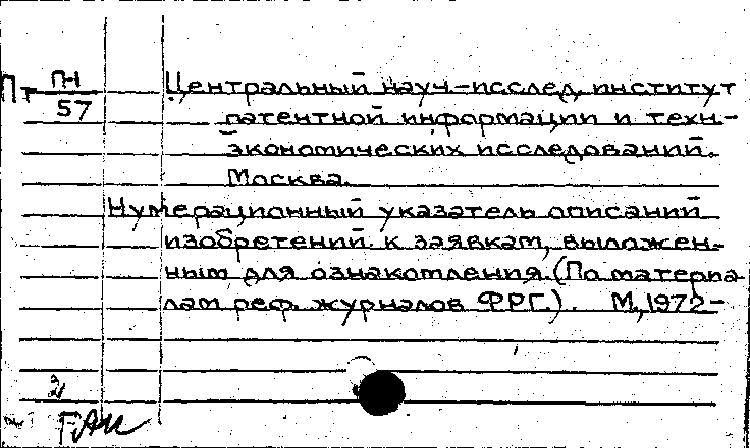 Пт П-I Центральный науч-исслед. институт
57 патентной информации и техн-
экономических исследований.
Москва.
Нумерационный указатель описаний
изобретений к заявкам, выложен-
ным для ознакомления. (По материа-
лам реф. журналов ФРГ.). М., 1972-